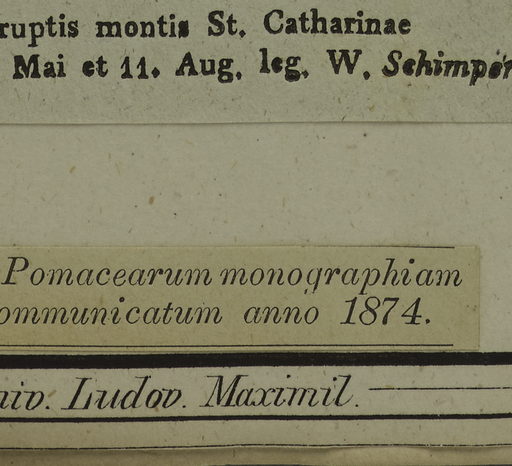 ruptis montis St. Catharinae
Mai et 11. Aug. leg. W. Schimper
Pomacearum monographiam
ommunicatum anno 1874.
niv. Ludov. Maximil.